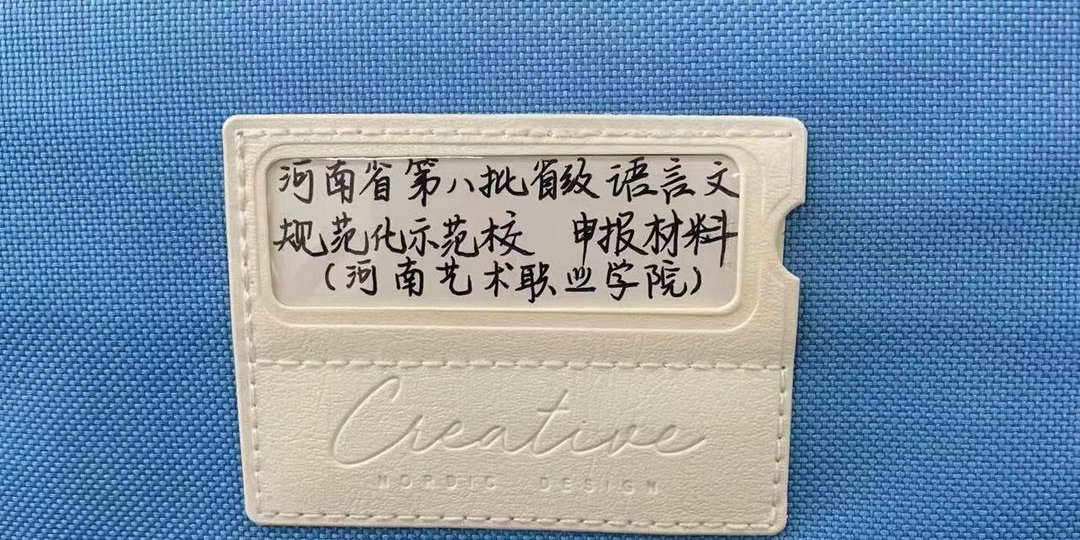 河南省第八批省级语言文
规范化示范校 申报材料
(河南艺术职业学院)
Creative
NORDIC DESIGN